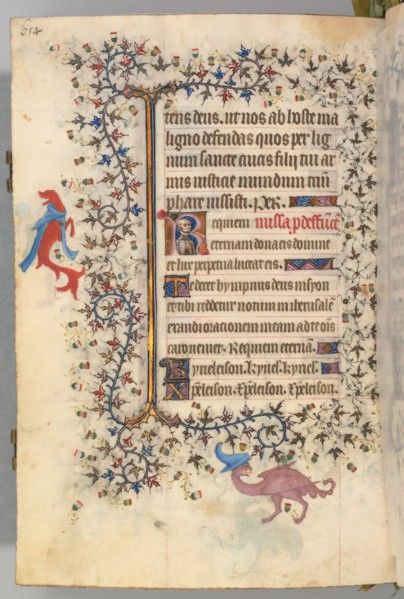 654
tens deus. ut nos ab hoste ma
ligno defendas quos per lig
num sancte crucis filij tui ar
mis iusticie mundum triu
phare iussisti. Per.
Requiem missa p deffunctis
eternam dona eis domine
et lux perpetua luceat eis.
Te decet hympnus deus in syon
et tibi reddetur votum in iherusalem
exaudi orationem meam ad te ois
caro veniet. Requiem eternā.
Kyrieleison. kyriel. kyriel.
Xpeleison. Xpeleison. Xpeleison.